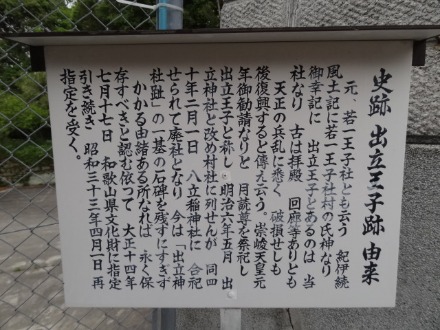 史跡 出立王子跡 由来
元、若一王子社とも云う 紀伊続
風土記に若一王子社村の氏神なり
御幸記に 出立王子とあるのは 当
社なり 古は拝殿 回廊等ありとも
天正の兵乱に悉く 破損せしも
後復興すると傳え云う。崇峻天皇元
年御勧請なりと 月読尊を祭祀し
出立王子と称し 明治六年五月 出
立神社と改め村社に列せんが 同四
十年二月一日 八立稲神社に 合祀
せられて廃社となり 今は「出立神
社趾」の一基の石碑を残すにすぎず
かかる由緒ある所なれば 永く保
存すべきと認む依って 大正十四年
七月十七日 和歌山県文化財に指定
引き続き 昭和三十三年四月一日再
指定を受く。